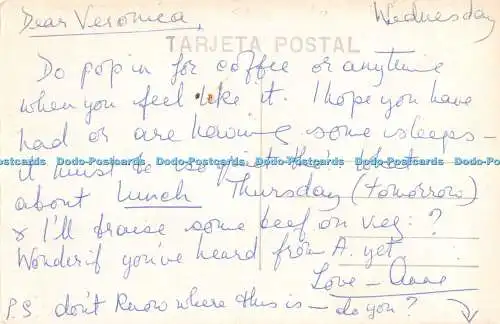 Dear Veronica, Wednesday
TARJETA POSTAL
Do pop in for coffee or anytime
when you feel like it. I hope you have
had or are having some sleeps –
it must be so
Postcards Dodo-Postcards Dodo-Postcards Dodo-Postcards Dodo-Postcards Dodo-Postcards
about lunch Thursday (tomorrow)
& I'll braise some beef on veg: ?
Wonder if you've heard from A. yet
Love – Anne
P.S. don't know where this is – do you?